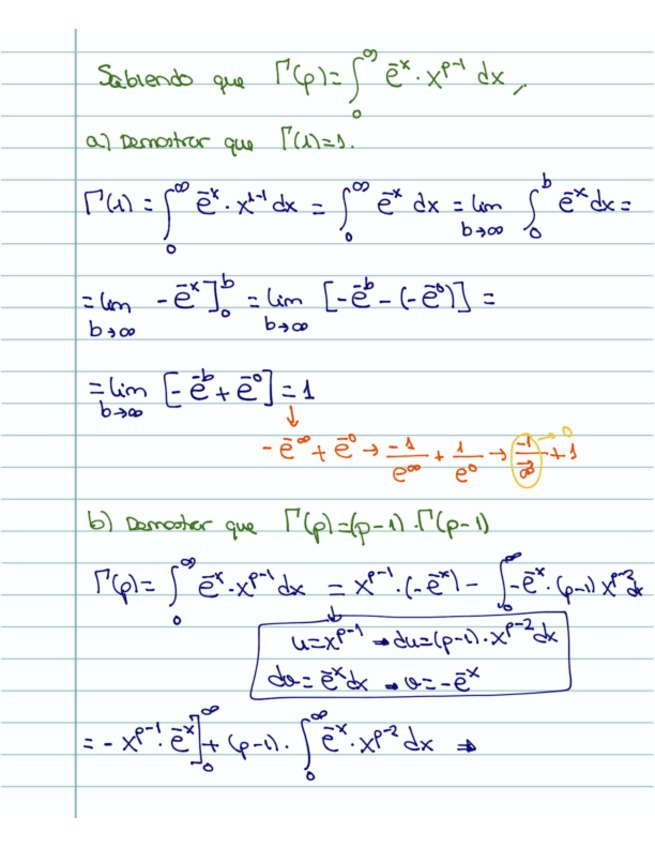 Sabiendo que Γ(p) = ∫₀^∞ e^-x · x^(p-1) dx,
a) Demostrar que Γ(1)=1.
Γ(1) = ∫₀^∞ e^-x · x^(1-1) dx = ∫₀^∞ e^-x dx = lim b→∞ ∫₀^b e^-x dx =
= lim b→∞ -e^-x]₀^b = lim b→∞ [-e^-b - (-e^-0)] =
= lim b→∞ [-e^-b + e^-0] = 1
↓
-e^-∞ + e^-0 → -1/e^∞ + 1/e^0 → -1/∞ + 1 → 0
b) Demostrar que Γ(p)=(p-1)·Γ(p-1)
Γ(p) = ∫₀^∞ e^-x · x^(p-1) dx = x^(p-1) · (-e^-x) - ∫₀^∞ -e^-x · (p-1) x^(p-2) dx
↓
u = x^(p-1) → du = (p-1) · x^(p-2) dx
dv = e^-x dx → v = -e^-x
= - x^(p-1) · e^-x]₀^∞ + (p-1) · ∫₀^∞ e^-x · x^(p-2) dx ⇒